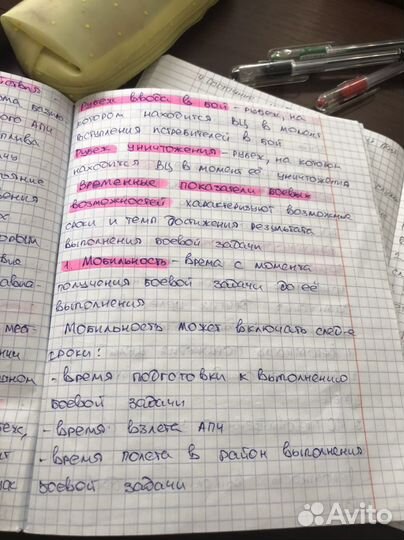 Рубеж ввода в бой - рубеж, на
котором находится ВЦ в момент
вступления истребителей в бой
Рубеж уничтожения - рубеж, на котором
находится ВЦ в момент её уничтожения
Временные показатели боевых
возможностей характеризуют возможные
сроки и темп достижения результата
выполнения боевой задачи
1. Мобильность - время с момента
получения боевой задачи до её
выполнения
Мобильность может включать след-е
сроки:
- время подготовки к выполнению
боевой задачи
- время взлета АПЧ
- время полета в район выполнения
боевой задачи
Avito